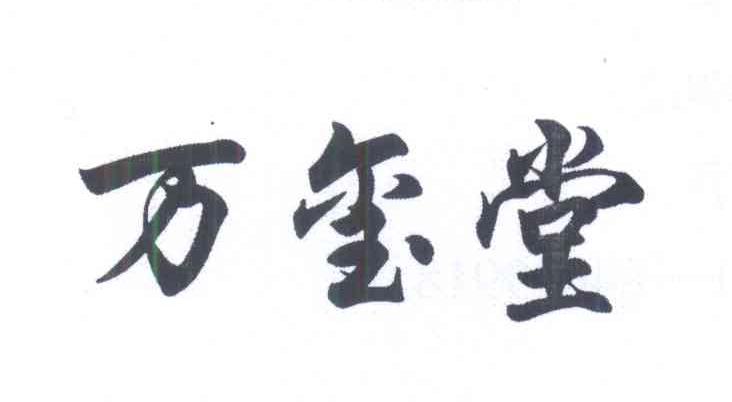 万玺堂